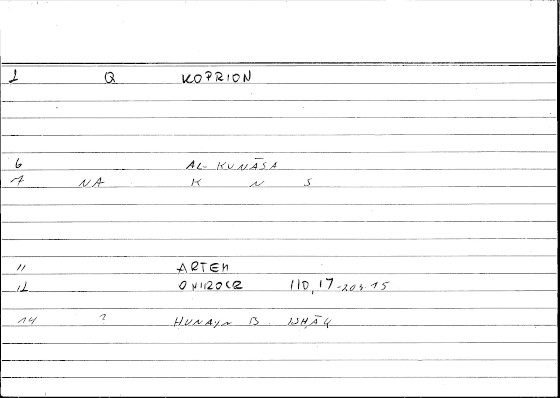 1 Q KOPRION
6 AL-KUNĀSA
7 NA K N S
11 ARTEM
12 ONIROCR 110,17-204.15
14 ? HUNAYN B. ISHĀQ